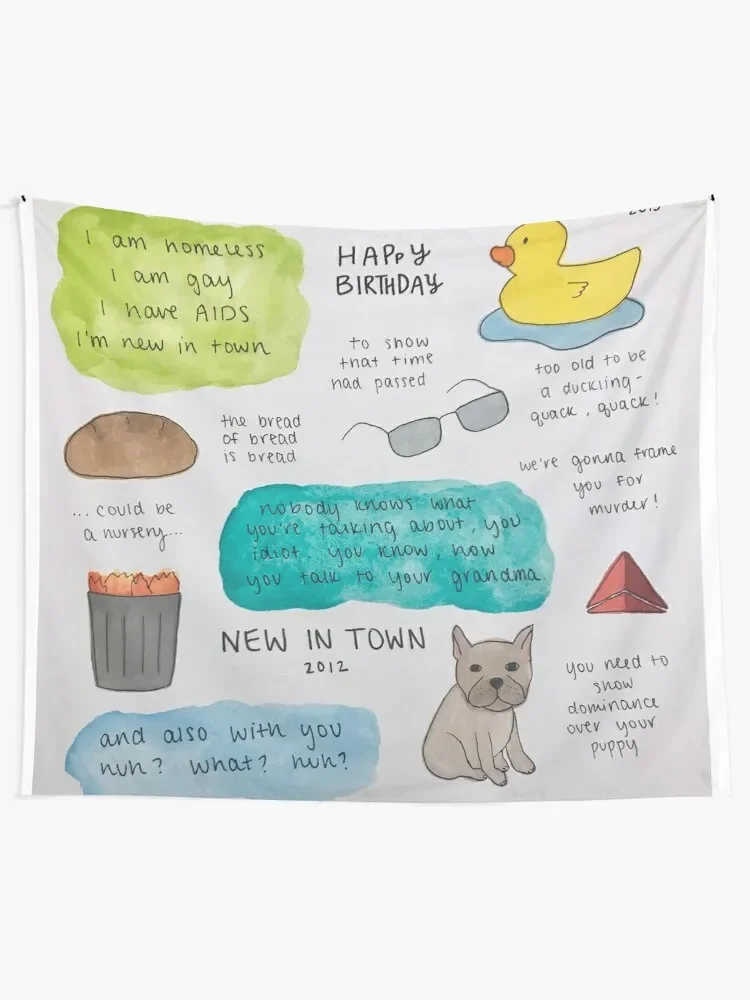 I am homeless
I am gay
I have AIDS
I'm new in town
HAPPY
BIRTHDAY
to show
that time
had passed
too old to be
a duckling-
quack, quack!
the bread
of bread
is bread
we're gonna frame
you for
murder!
... could be
a nursery...
nobody knows what
you're talking about, you
idiot you know, how
you talk to your grandma.
NEW IN TOWN
2012
you need to
show
dominance
over your
puppy
and also with you
huh? what? huh?